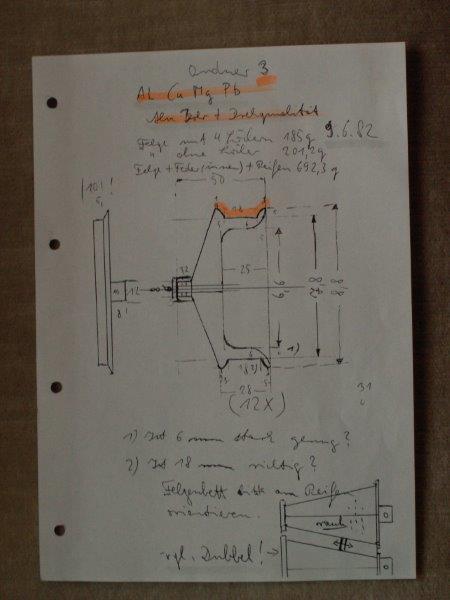 Ordner 3
AL Cu Mg Pb
Alu Feder + Drehqualität
9.6.82
Felge mit 4 Löchern 185 g
" ohne Löcher 201,2 g
Felge + Feder (innen) + Reifen 692,3 g
50
101!
32
12
25
1)
28
(12X)
31
1) Ist 6 mm stark genug?
2) Ist 18 mm richtig?
Felgenbett bitte am Reifen
orientieren.
rauh
vgl. Dubbel!